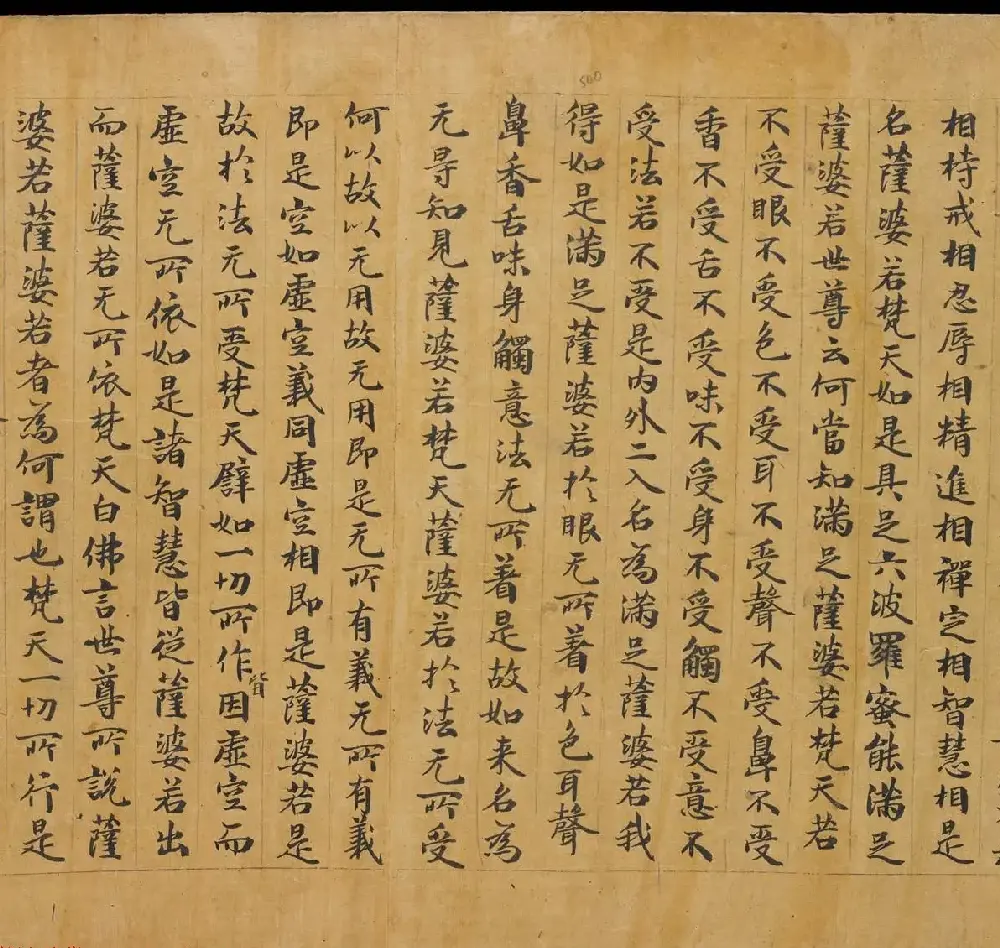 相持戒相忍辱相精進相禪定相智慧相是
名薩婆若梵天如是具足六波羅蜜能滿足
薩婆若世尊云何當知滿足薩婆若梵天若
不受眼不受色不受耳不受聲不受鼻不受
香不受舌不受味不受身不受觸不受意不
受法若不受是內外二入名為滿足薩婆若我
得如是滿足薩婆若於眼无所著於色耳聲
鼻香舌味身觸意法无所著是故如来名為
无导知見薩婆若梵天薩婆若於法无所受
何以故以无用故无用即是无所有義无所有義
即是空如虛空義同虛空相即是薩婆若是
故於法无所受梵天譬如一切所作皆因虛空而
虛空无所依如是諸智慧皆從薩婆若出
而薩婆若无所依梵天白佛言世尊所說薩
婆若薩婆若者為何謂也梵天一切所行是